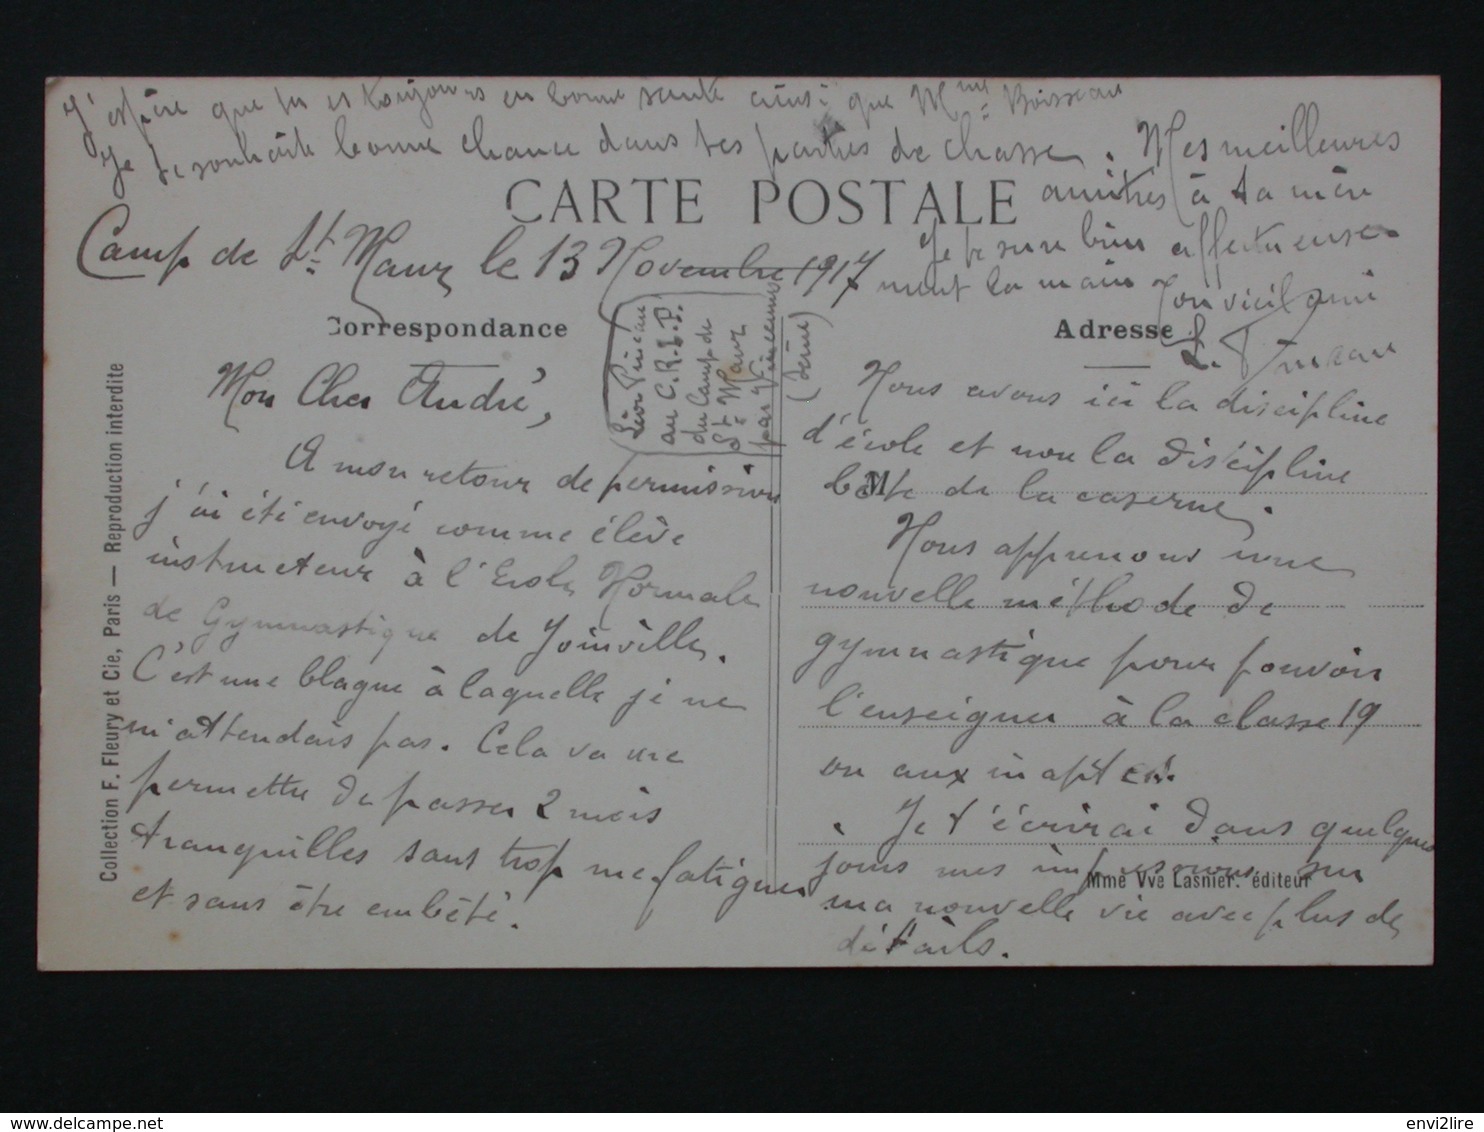 Camp de St Maur le 13 Novembre 1917
CARTE POSTALE
Correspondance
Mon Cher André,
A mon retour de permission
j'ai été envoyé comme élève
instructeur à l'Ecole Normale
de Gymnastique de Joinville.
C'est une blague à laquelle je ne
m'attendais pas. Cela va me
permettre de passer 2 mois
tranquilles sans trop me fatiguer
et sans être embêté.
Léon Pineau
au C.R.I.P.
du Camp de
St Maur
par Vincennes
(Seine)
Adresse
M
Nous avons ici la discipline
d'école et non la discipline
bête de la caserne.
Nous apprenons une
nouvelle méthode de
gymnastique pour pouvoir
l'enseigner à la classe 19
ou aux inaptes.
Je t'écrirai dans quelques
jours mes impressions sur
ma nouvelle vie avec plus de
détails.
J'espère que tu es toujours en bonne santé ainsi que Mme Boisseau
Je te souhaite bonne chance dans tes parties de chasse. Mes meilleures
amitiés à ta mère
Je te serre bien affectueuse-
ment la main
Ton vieil ami
L. Pineau
Mme Vve Lasnier. éditeur
Collection F. Fleury et Cie, Paris — Reproduction interdite
delcampe.net
envi2lire